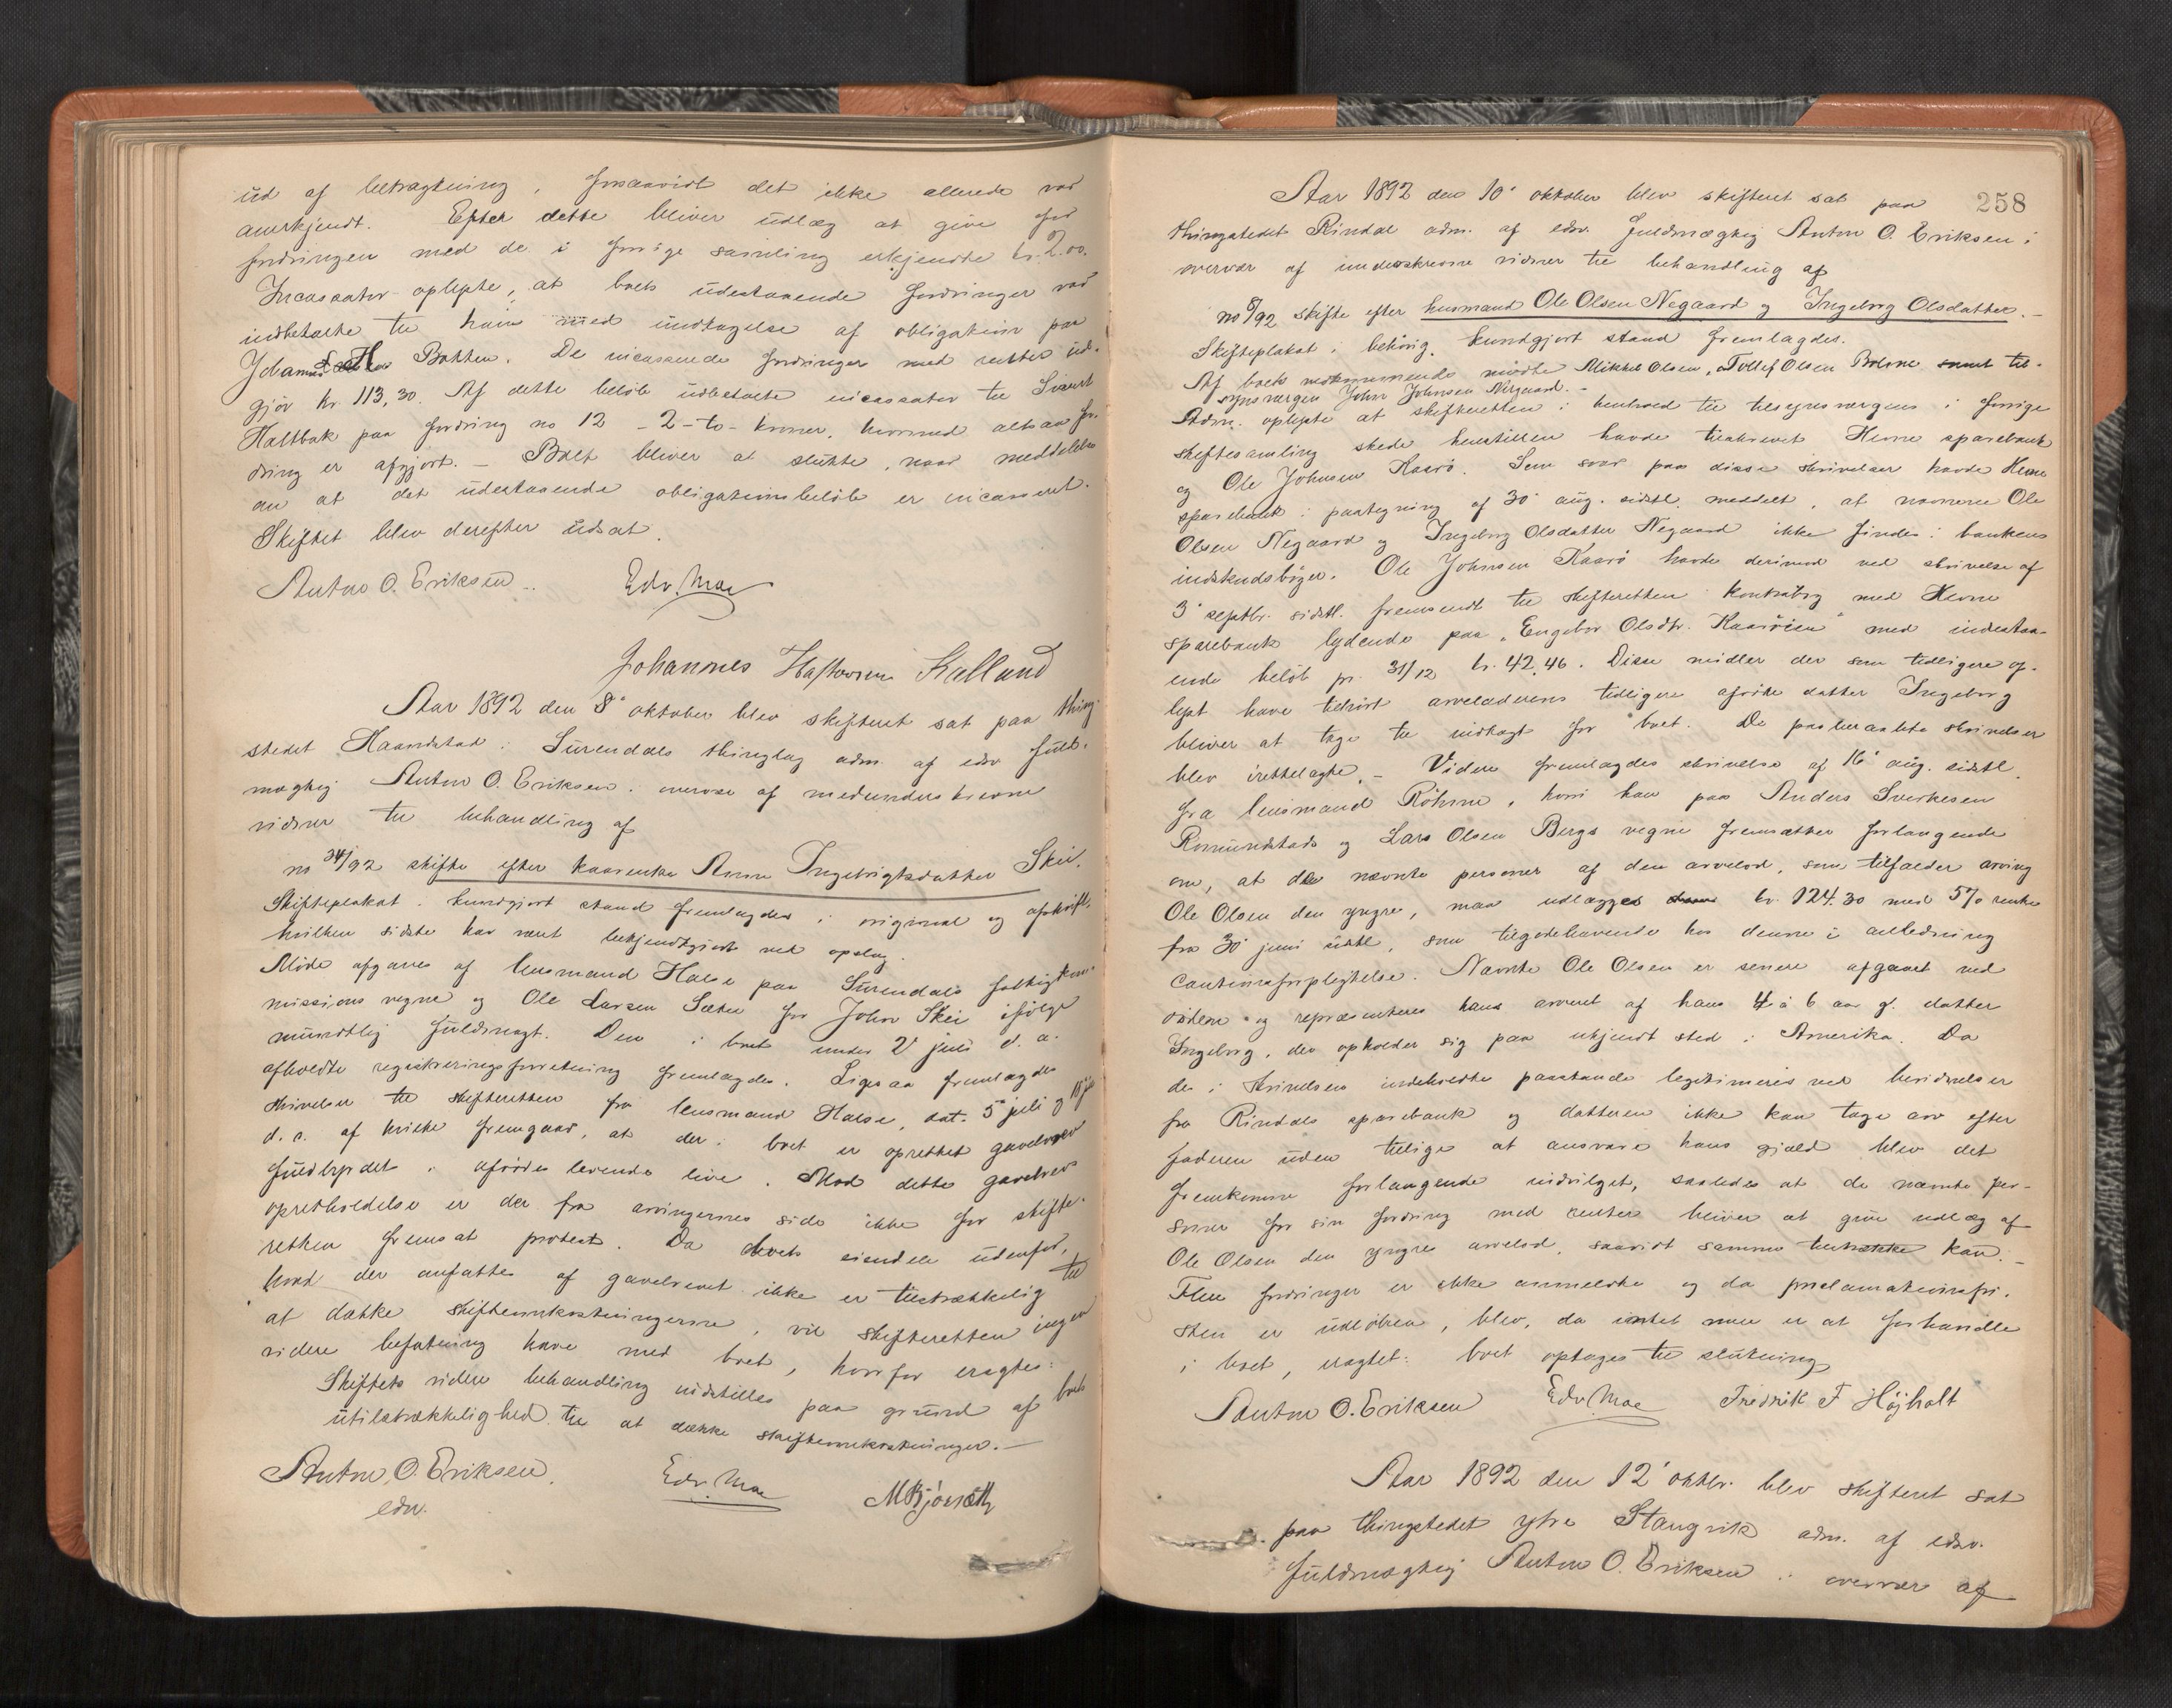 ud af betragtning, forsaavidt det ikke allerede var
anerkjendt. Efter dette bliver udlæg at give for
fordringen med de i forrige samling erkjendte kr. 2.00.
Incassator oplyste, at boets udestaaende fordringer var
indbetalte til ham med undtagelse af obligation paa
Johannes Botten. De incasserede fordringer med renter ud-
gjør kr. 113,30. Af dette beløb udbetalte incassator til Sivert
Haltbak paa fordring no 12 - 2 - to - kroner, hvormed altsaa for-
dring er afgjort. - Boet bliver at slutte, naar meddelelse
om at det udestaaende obligationsbeløb er incasseret.
Skiftet blev derefter udsat.
Anton O. Eriksen Edv. Moe
Johannes Kalland
Aar 1892 den 8' oktober blev skifteret sat paa thing-
stedet Haandstad i Surendals thinglag adm. af edsv. fuld-
mægtig Anton O. Eriksen i overvær af medunderskrevne
vidner til behandling af
no 34/92 skifte efter kaarenke Anne Ingebrigtsdatter Skei.
Skifteplakat i kundgjort stand fremlagdes i original og afskrift,
hvilken sidste har været bekjendtgjort ved opslag.
Møde afgaves af lensmand Halse paa Surendals fattigkom-
missions vegne og Ole Larsen Sæter for John Skei ifølge
mundtlig fuldmagt. Den i boet under 2' juli d. a.
afholdte registreringsforretning fremlagdes. Ligesaa fremlagdes
skrivelser til skifteretten fra lensmand Halse, dat. 5' juli og
d. a. af hvilke fremgaar, at der i boet er oprettet gavebrev
fuldbyrdet i afdødes levende live. Mod dette gavebrevs
opretholdelse er der fra arvingernes side ikke for skifte-
retten fremsat protest. Da boets eiendele udenfor,
hvad der omfattes af gavebrevet ikke er tilstrækkelig til
at dække skifteomkostningerne, vil skifteretten ingen
videre befatning have med boet, hvorfor eragtes:
Skiftets videre behandling indstilles paa grund af boets
utilstrækkelighed til at dække skifteomkostninger. -
Anton O. Eriksen Edv. Moe
edsv.
258
Aar 1892 den 10' oktober blev skifteret sat paa
thingstedet Rindal adm. af edsv. fuldmægtig Anton O. Eriksen i
overvær af underskrevne vidner til behandling af
no 8/92 skifte efter husmand Ole Olsen Negaard og Ingeborg Olsdatter. -
Skifteplakat i behørig kundgjort stand fremlagdes.
Af boets vedkommende mødte Mikkel Olsen, Tollef Olsen Bolme samt til-
synsværgen John Johnsen Negaard. -
Adm. oplyste at skifteretten i henhold til tilsynsværgens i forrige
skiftesamling skede henstillen havde tilskrevet Hevne sparebank
og Ole Johnsen Kaarø. Som svar paa disse skrivelser havde Hevne
sparebank i paategning af 30' aug. sidstl. meddelt, at navnene Ole
Olsen Negaard og Ingeborg Olsdatter Negaard ikke findes i bankens
indskudsbøger. Ole Johnsen Kaarø havde derimod ved skrivelse af
3' septbr. sidstl. fremsendt til skifteretten kontrabog med Hevne
sparebank lydende paa "Engebor Olsdtr. Kaarøien" med indestaa-
ende beløb pr. 31/12 kr. 42,46. Disse midler der som tidligere op-
lyst have tilhørt arveladerens tidligere afdøde datter Ingeborg
bliver at tage til indtægt for boet. De paaberaabte skrivelser
blev irettelagte. - Videre fremlagdes skrivelse af 16' aug. sidstl.
fra lensmand Röhme, hvori han paa Anders Sverkesen
Romundstads og Lars Olsen Bergs vegne fremsætter forlangende
om, at de nævnte personer af den arvelod, som tilfalder arving
Ole Olsen den yngre, maa udlægges kr. 124.30 med 5% rente
fra 30' juni sidstl., som tilgodehavende hos denne i anledning
cautionsforpligtelse. Nævnte Ole Olsen er senere afgaaet ved
døden og repræsenteres hans arveret af hans 4 à 6 aar gl. datter
Ingeborg, der opholder sig paa ukjendt sted i Amerika. Da
de i skrivelsen indeholdte paastande legitimeres ved bevidnelser
fra Rindals sparebank og datteren ikke kan tage arv efter
faderen uden tillige at ansvare hans gjæld blev det
fremkomne forlangende indvilget, saaledes at de nævnte per-
soner for sin fordring med renter bliver at give udlæg af
Ole Olsen den yngres arvelod, saavidt samme tilstrække kan. -
Flere fordringer er ikke anmeldte og da proclamationsfri-
sten er udløben, blev, da intet mere er at forhandle
i boet, eragtet: boet optages til slutning
Anton O. Eriksen Edv. Moe Fredrik F Højholt
Aar 1892 den 12' oktbr. blev skifteret sat
paa thingstedet ytre Stangvik adm. af edsv.
fuldmægtig Anton O. Eriksen i overvær af